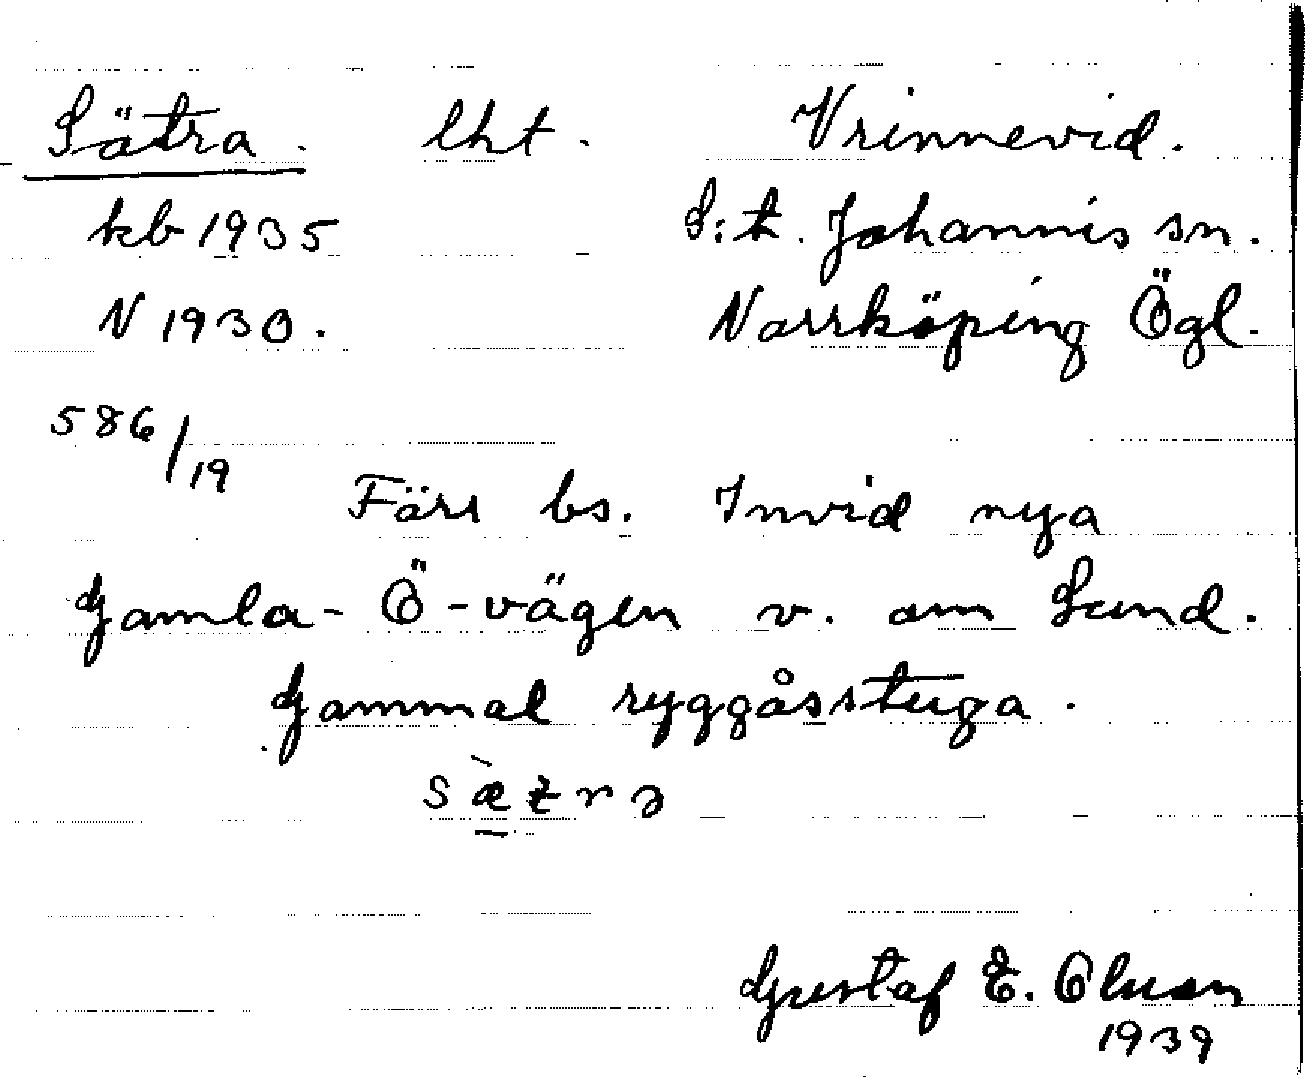 Sätra. lht. Vrinnevid.
kb 1935 S:t. Johannis sn.
N 1930. Norrköping Ögl.
586/19
Färs bs. Invid nya
Gamla-Ö-vägen v. om Sund.
Gammal ryggåsstuga.
Gustaf E. Olsson
1939